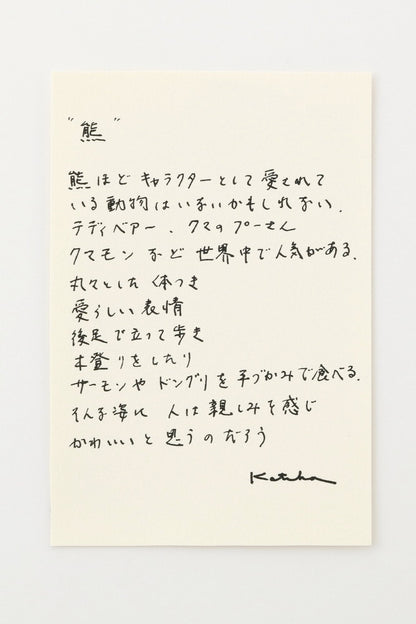 "熊"
熊ほど キャラクターとして愛されて
いる動物はいないかもしれない.
テディベアー、クマのプーさん
クマモン など 世界中で人気がある.
丸々とした 体つき
愛らしい表情
後足で立って歩き
木登りをしたり
サーモンや ドングリを手づかみで食べる.
そんな姿に 人は親しみを感じ
かわいいと思うのだろう